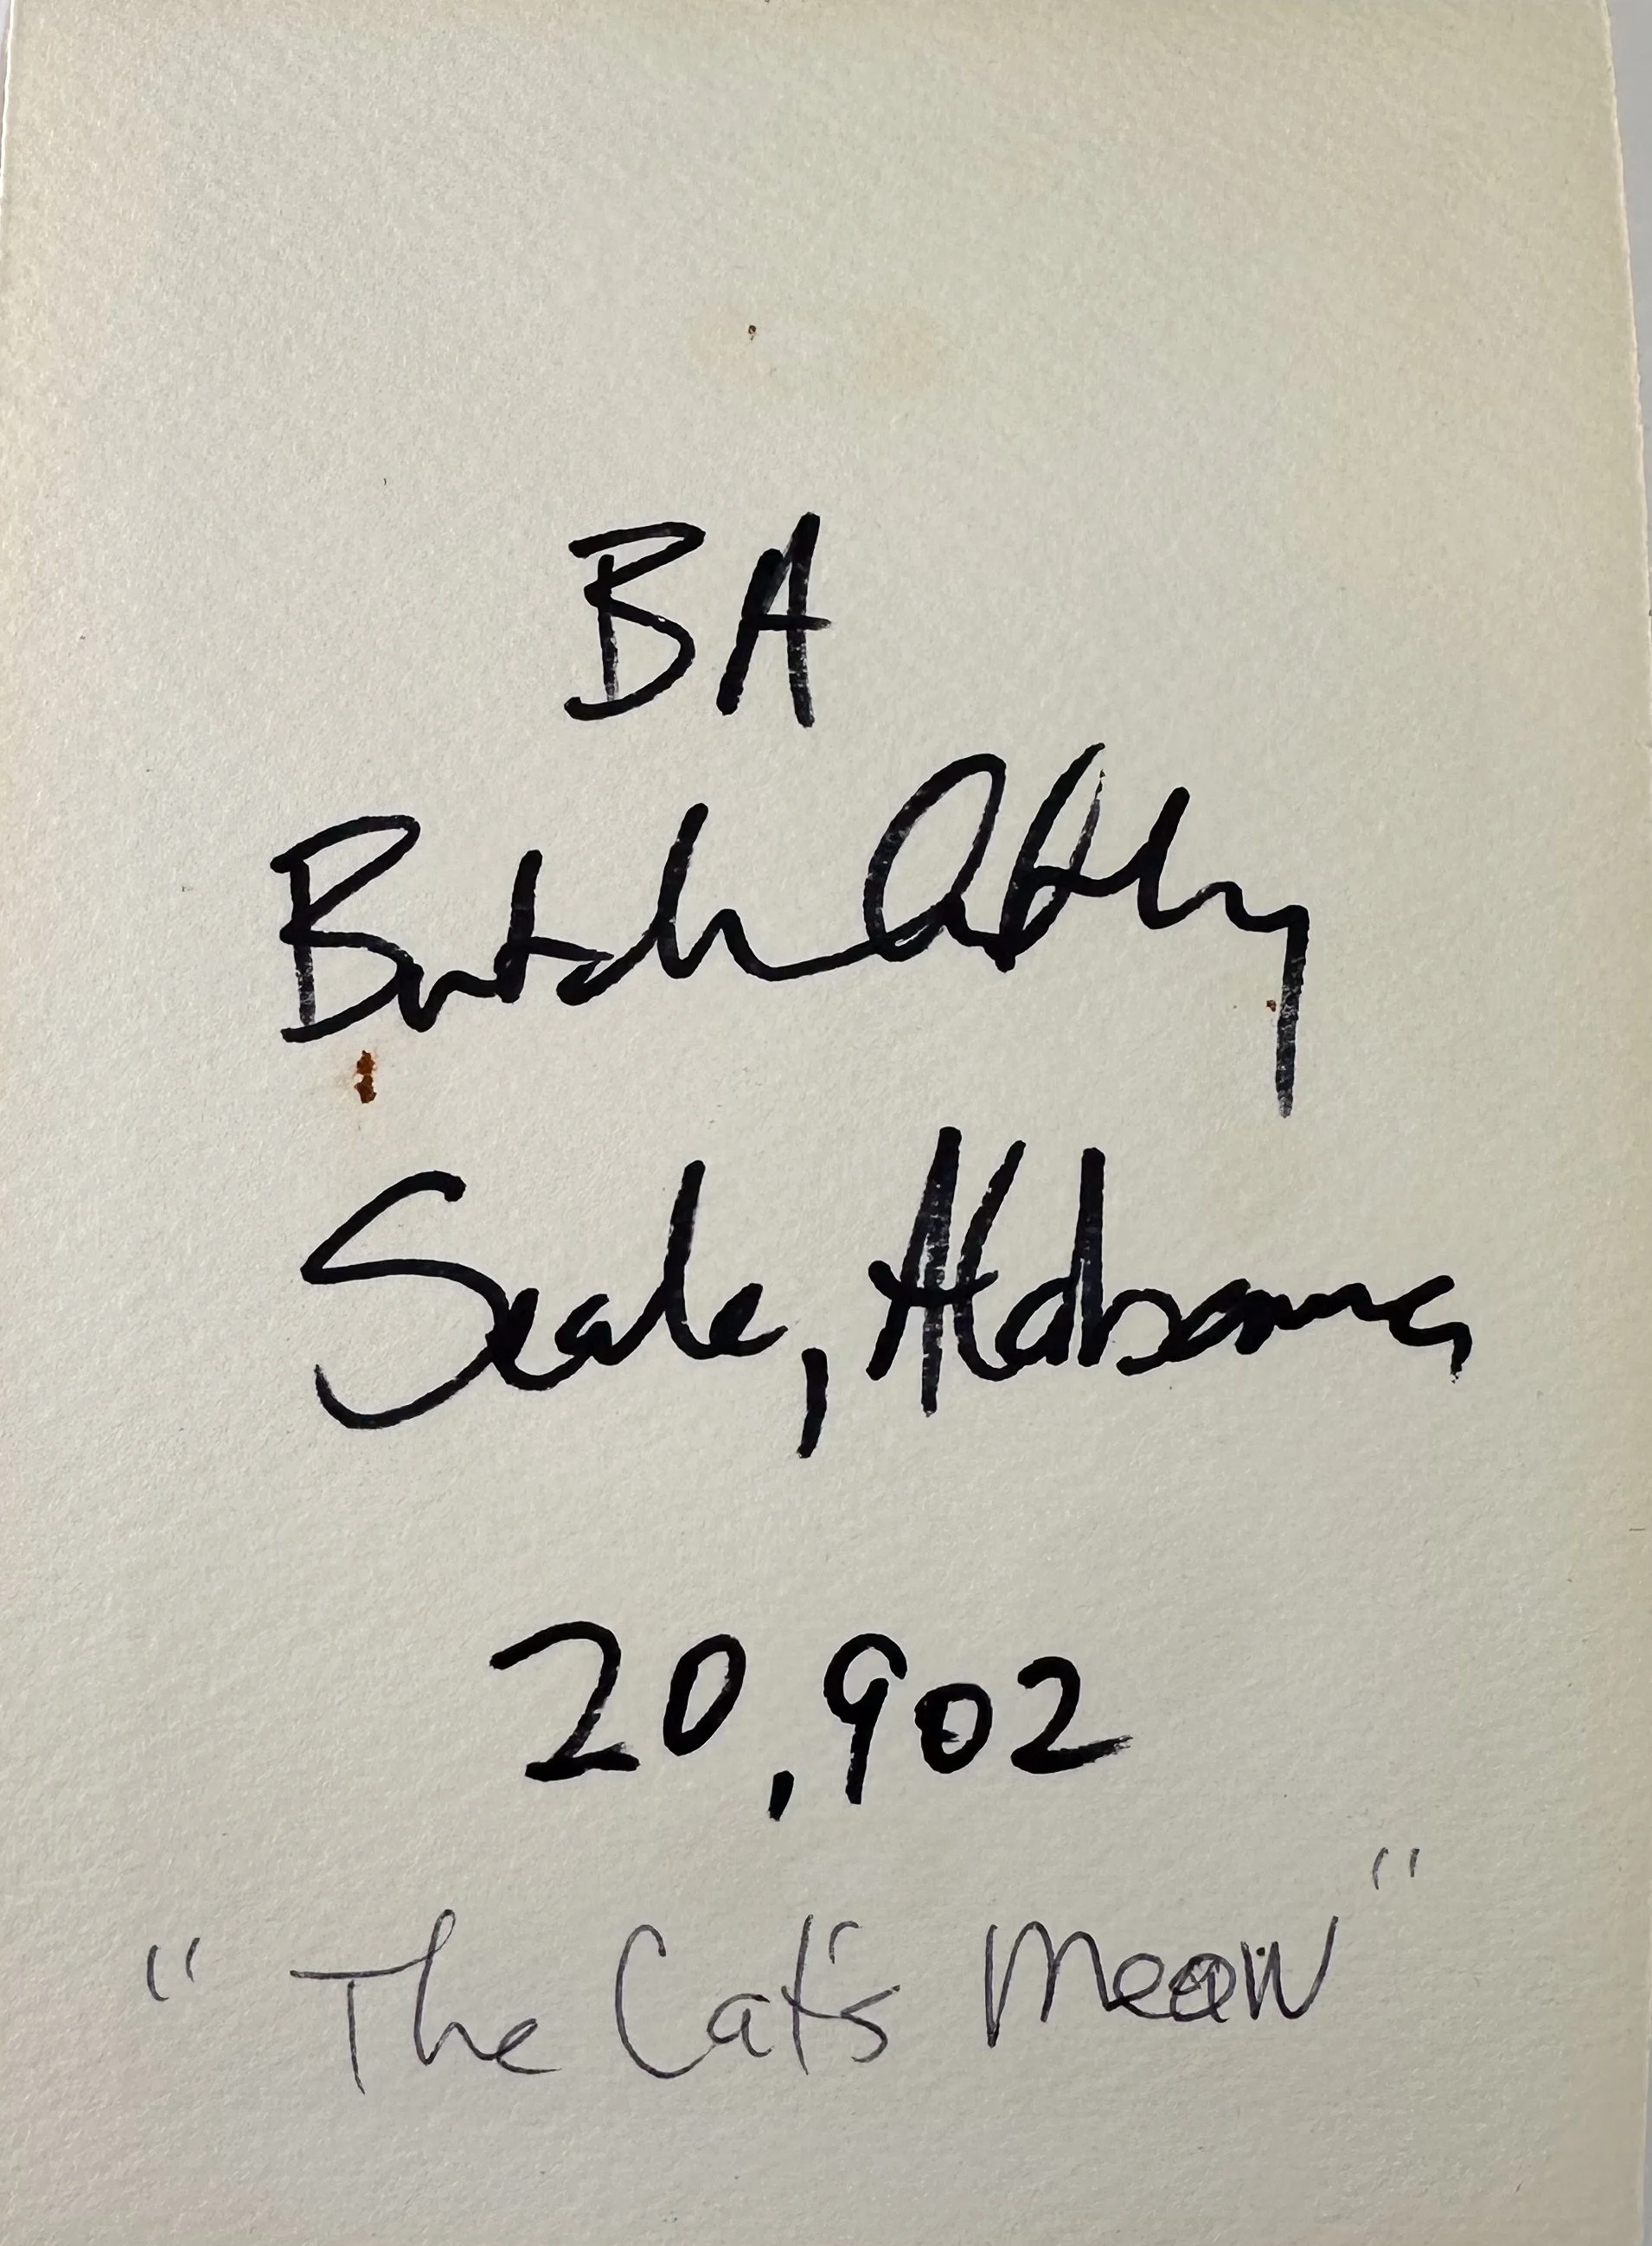 BA
Butch Anthony
Seale, Alabama
20,902
"The Cat's Meow"